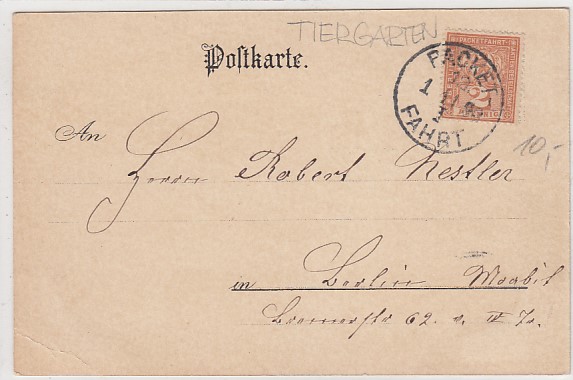 TIERGARTEN
Postkarte.
PACKETFAHRT
2
PACKET-
1
FAHRT
10,-
An
Herrn Robert Nestler
in Berlin Moabit
Bremerstr 62. v. IV Tr.